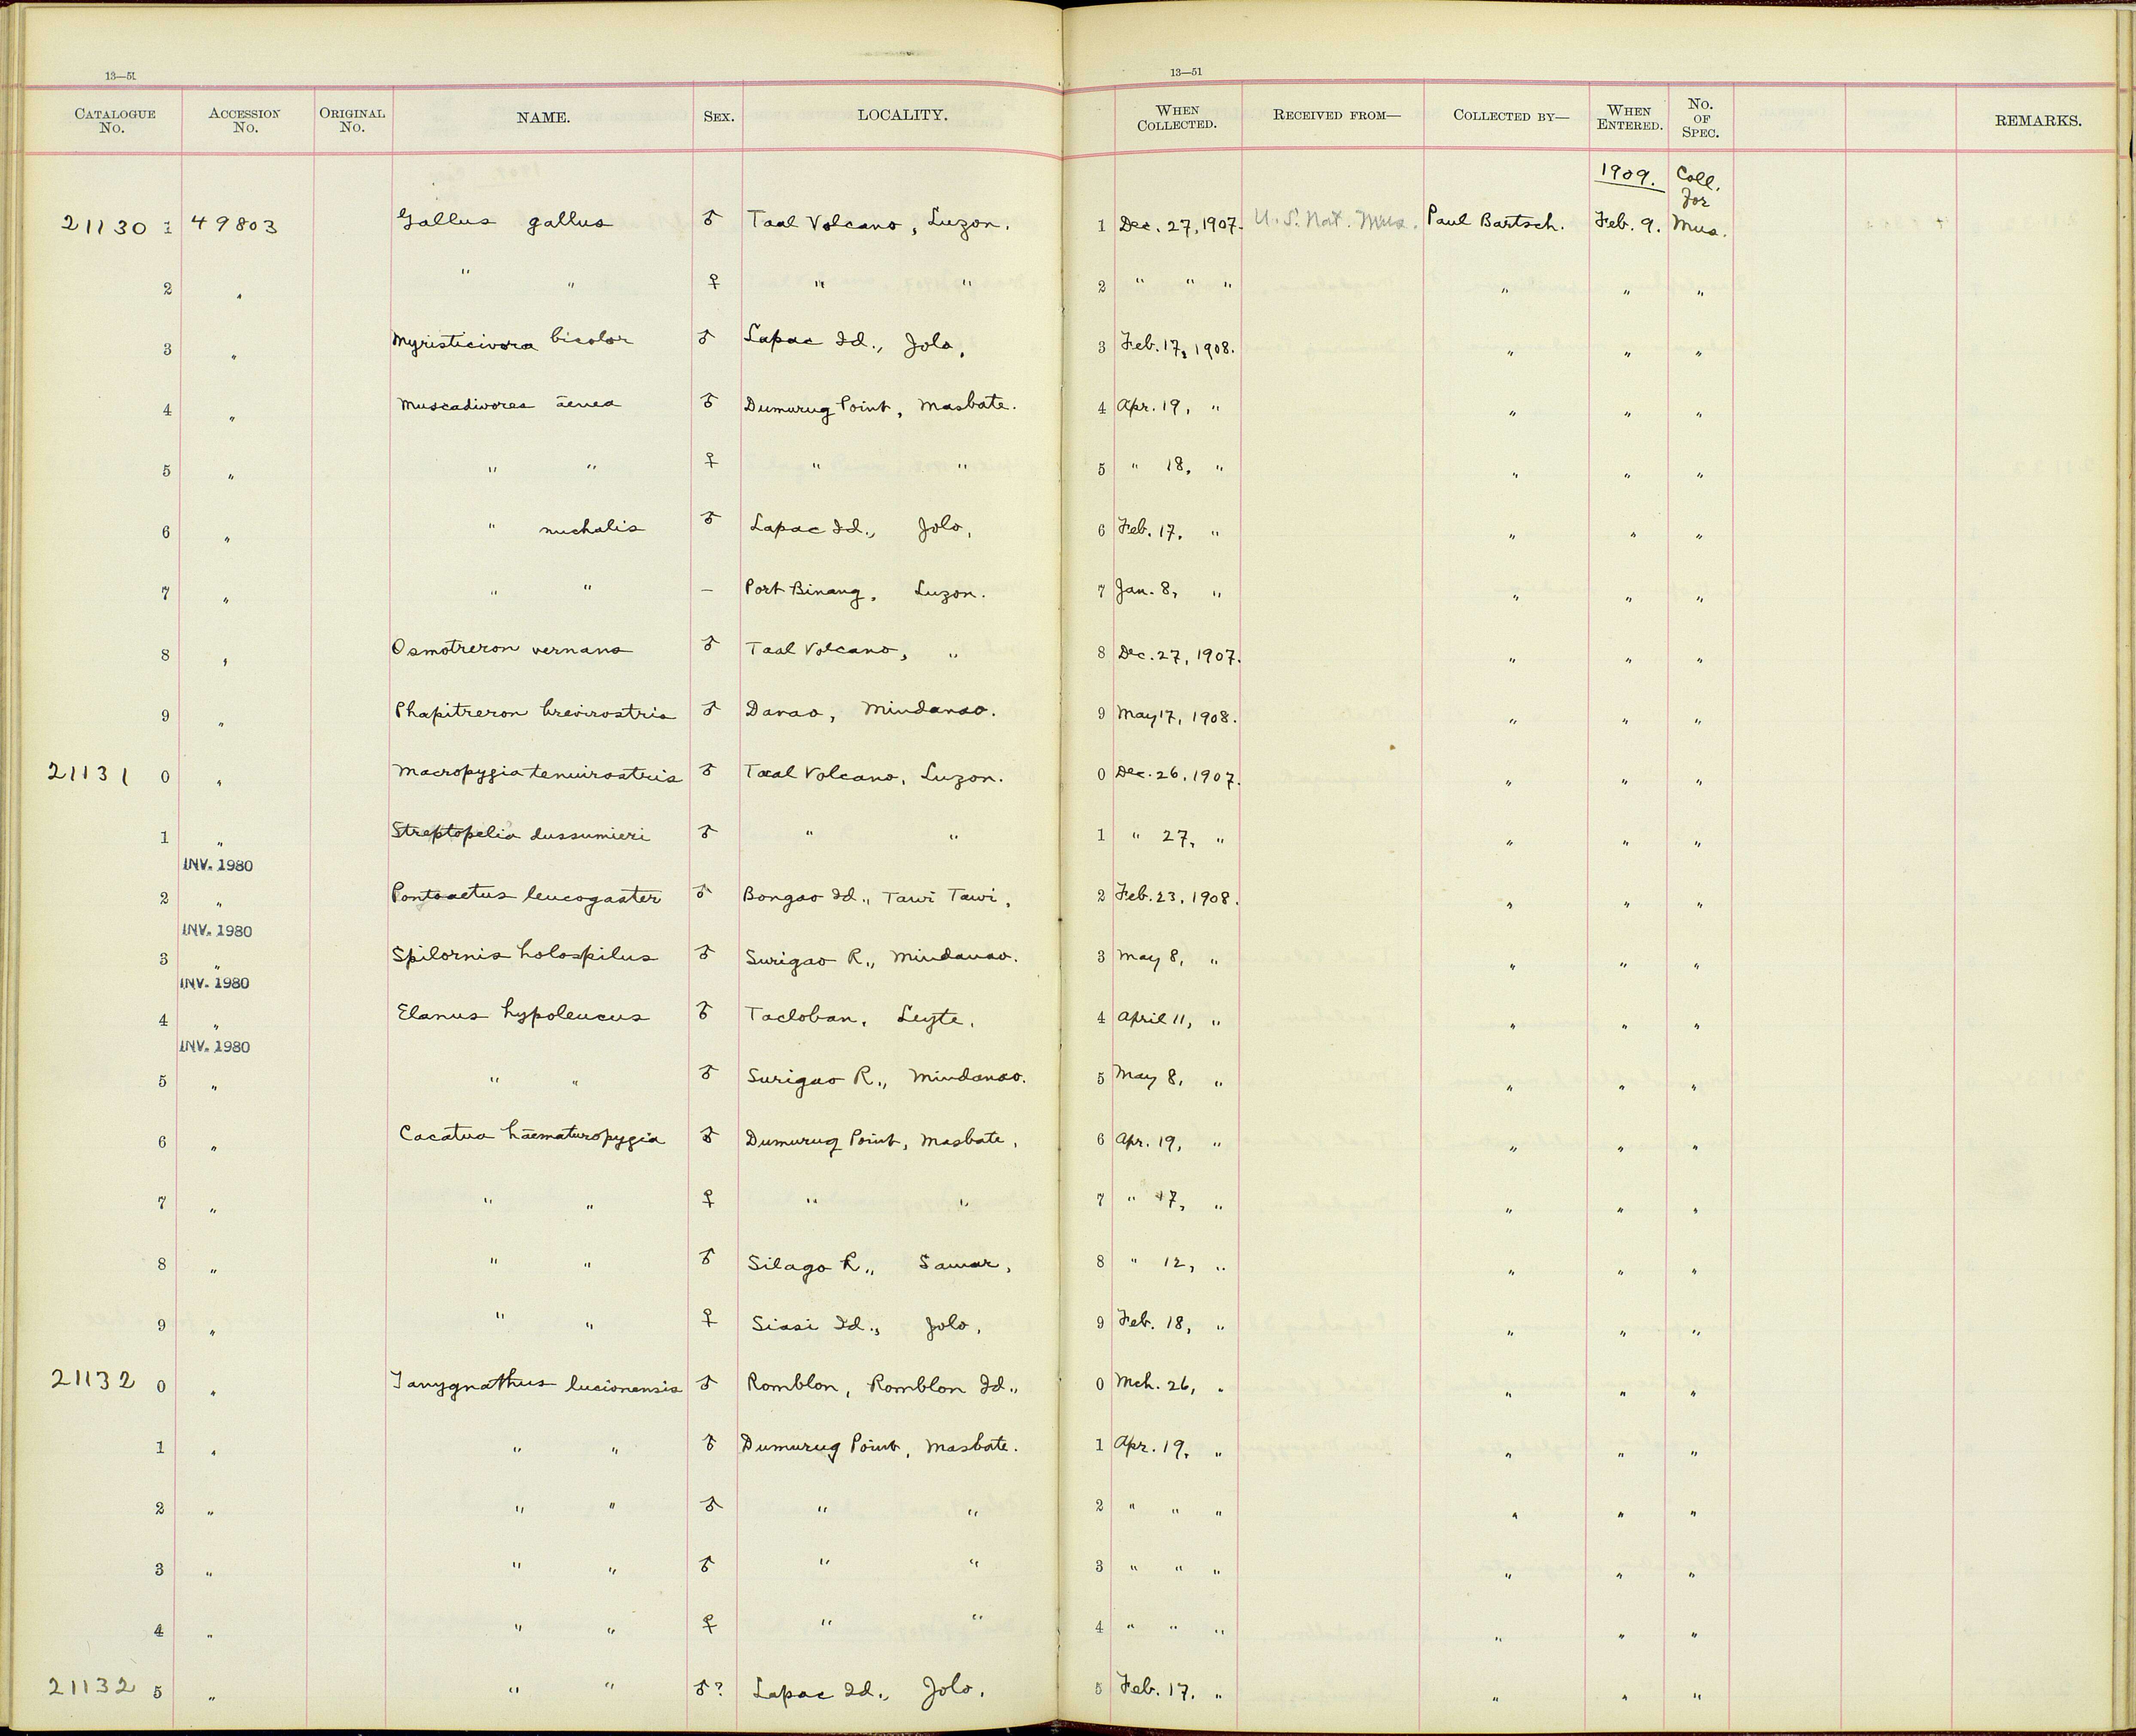 13—51 13—51
CATALOGUE No. ACCESSION No. ORIGINAL No. NAME. SEX. LOCALITY. WHEN COLLECTED. RECEIVED FROM— COLLECTED BY— WHEN ENTERED. No. OF SPEC. REMARKS.
1909. Coll. for
21130 1 49803 Gallus gallus ♂ Taal Volcano, Luzon. 1 Dec. 27, 1907. U. S. Nat. Mus. Paul Bartsch. Feb. 9. Mus.
2 " " " ♀ " " 2 " " " " " "
3 " Myristicivora bicolor ♂ Lapac Id., Jolo, 3 Feb. 17, 1908. " " "
4 " Muscadivores äenea ♂ Dumurug Point, Masbate. 4 Apr. 19, " " " "
5 " " " ♀ " " 5 " 18, " " " "
6 " " nuchalis ♂ Lapac Id., Jolo, 6 Feb. 17, " " " "
7 " " " – Port Binang, Luzon. 7 Jan. 8, " " " "
8 " Osmotreron vernans ♂ Taal Volcano, " 8 Dec. 27, 1907. " " "
9 " Phapitreron brevirostris ♂ Davao, Mindanao. 9 May 17, 1908. " " "
21131 0 " Macropygia tenuirostris ♂ Taal Volcano, Luzon. 0 Dec. 26, 1907. " " "
1 " Streptopelia dussumieri ♂ " " 1 " 27, " " " "
INV. 1980
2 " Pontoaetus leucogaster ♂ Bongao Id., Tawi Tawi, 2 Feb. 23, 1908. " " "
INV. 1980
3 " Spilornis holospilus ♂ Surigao R., Mindanao. 3 May 8, " " " "
INV. 1980
4 " Elanus hypoleucus ♂ Tacloban, Leyte, 4 April 11, " " " "
INV. 1980
5 " " " ♂ Surigao R., Mindanao. 5 May 8, " " " "
6 " Cacatua häematuropygia ♂ Dumurug Point, Masbate, 6 Apr. 19, " " " "
7 " " " ♀ " " 7 " 17, " " " "
8 " " " ♂ Silago R., Samar, 8 " 12, " " " "
9 " " " ♀ Siasi Id., Jolo, 9 Feb. 18, " " " "
21132 0 " Tanygnathus lucionensis ♂ Romblon, Romblon Id., 0 Mch. 26, " " " "
1 " " " ♂ Dumurug Point, Masbate. 1 Apr. 19, " " " "
2 " " " ♂ " " 2 " " " " " "
3 " " " ♂ " " 3 " " " " " "
4 " " " ♀ " " 4 " " " " " "
21132 5 " " " ♂? Lapac Id., Jolo, 5 Feb. 17, " " " "